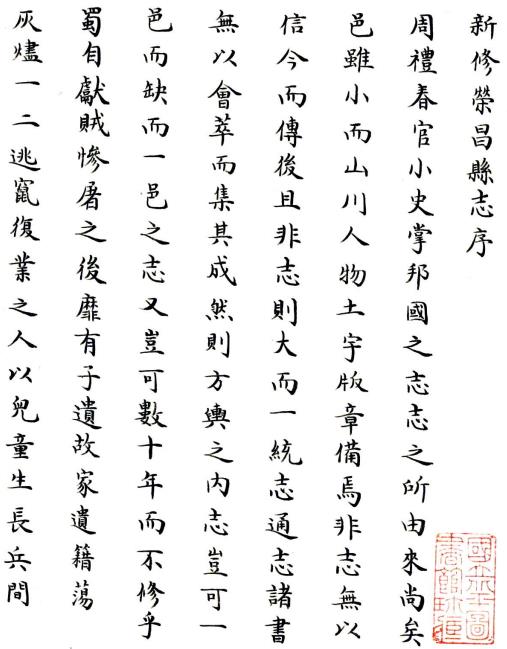 新修榮昌縣志序
周禮春官小史掌邦國之志志之所由來尚矣
邑雖小而山川人物土宇版章備焉非志無以
信今而傳後且非志則大而一統志通志諸書
無以會萃而集其成然則方輿之內志豈可一
邑而缺而一邑之志又豈可數十年而不修乎
蜀自獻賊慘屠之後靡有孑遺故家遺籍蕩
灰燼一二逃竄復業之人以兒童生長兵間